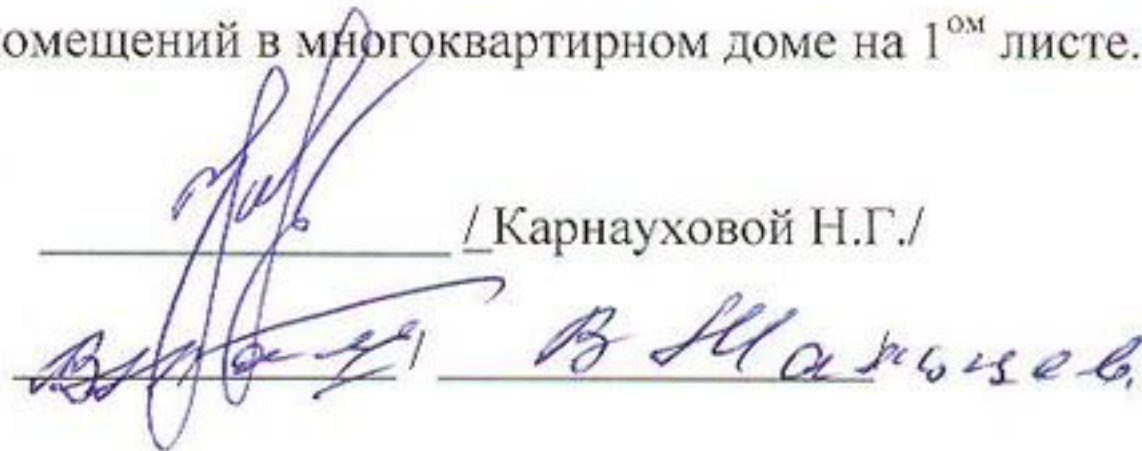 помещений в многоквартирном доме на 1ом листе.
/ Карнауховой Н.Г./
/ В